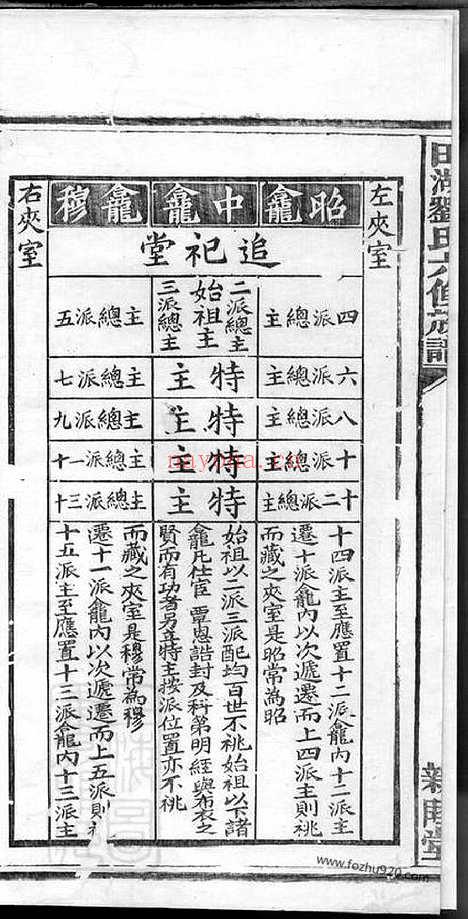 劉氏六修族譜
左夾室
昭龕
中龕
龕穆
追祀堂
四派總主
二派總主
始祖主
三派總主
主總派五
六派總主
特主
主總派七
八派總主
特主
主總派九
十派總主
特主
主總派一十
十二派總主
特主
主總派三十
十四派主至應置十二派龕內十二派主
遷十派龕內以次遞遷而上四派主則祧
而藏之夾室是昭常為昭
始祖以二派三派配均百世不祧始祖以下諸
龕凡仕宦覃恩誥封及科第明經與布衣之
賢而有功者另立特主按派位置亦不祧
十五派主至應置十三派龕內十三派主
遷十一派龕內以次遞遷而上五派則祧
而藏之夾室是穆常為穆
右夾室
nayona.cn
www.fozhu920.com